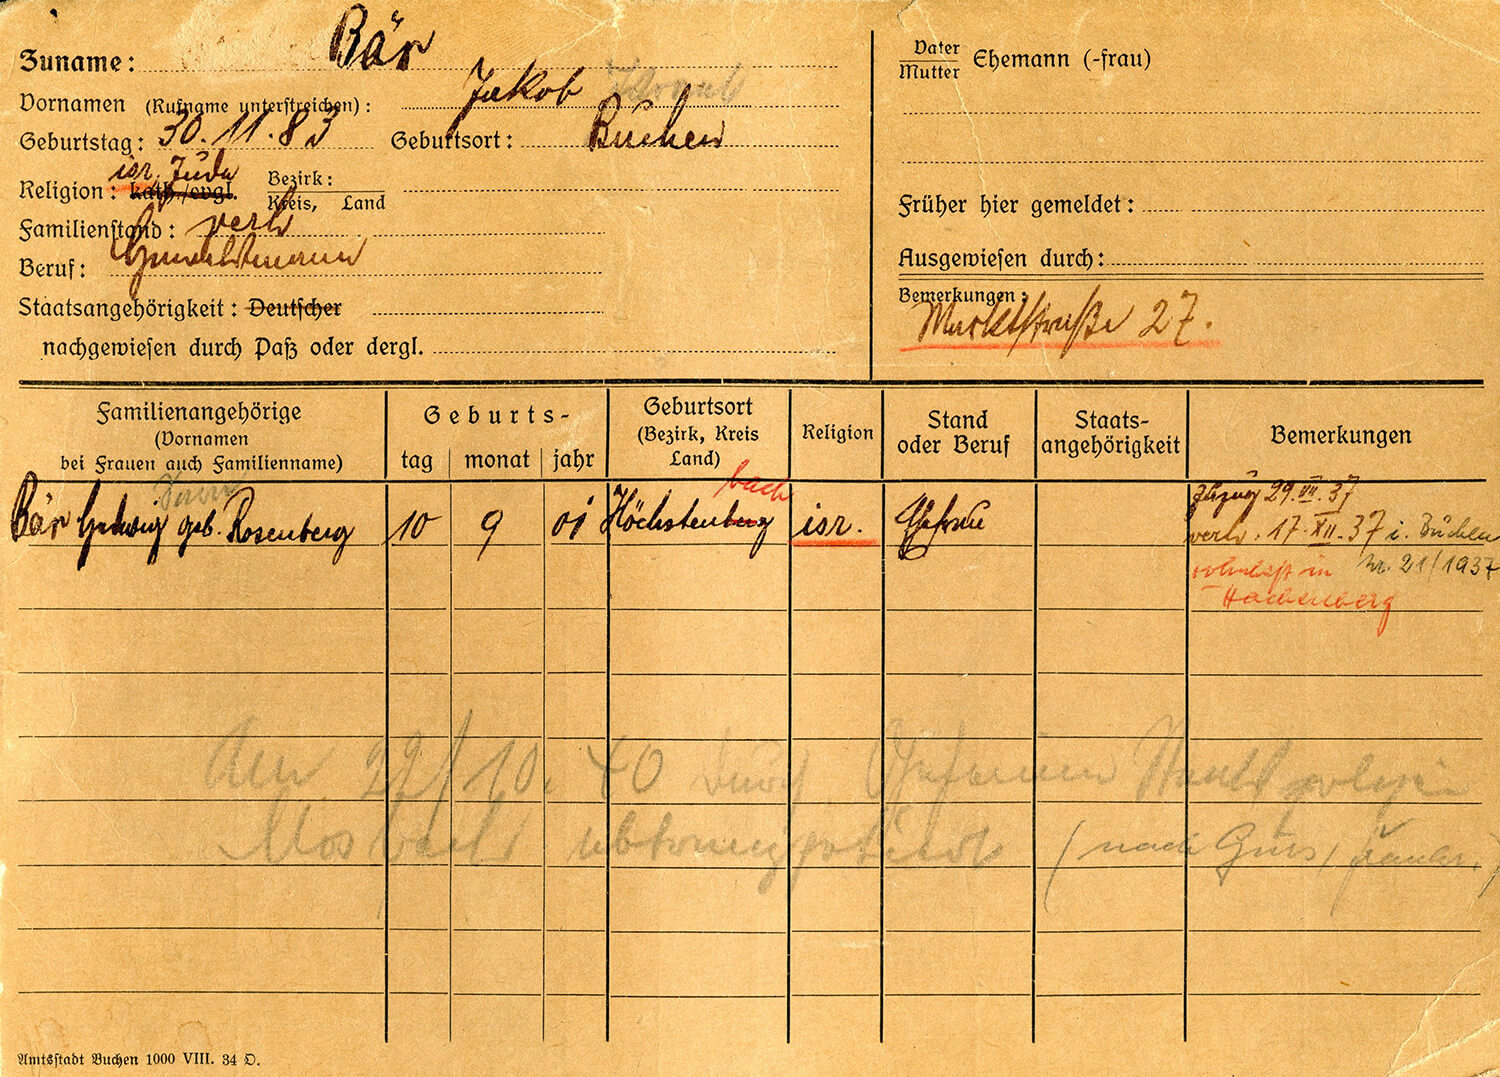 Zuname: Bär
Vornamen (Rufname unterstreichen): Jakob Israel
Geburtstag: 30.11.83 Geburtsort: Buchen
isr. Jude
Religion: kath./evgl. Bezirk: Kreis, Land
Familienstand: verh
Beruf: Handelsmann
Staatsangehörigkeit: Deutscher
nachgewiesen durch Paß oder dergl.
Vater
Mutter Ehemann (-frau)
Früher hier gemeldet:
Ausgewiesen durch:
Bemerkungen:
Marktstraße 27.
Familienangehörige
(Vornamen
bei Frauen auch Familienname)
Geburts-
tag monat jahr
Geburtsort
(Bezirk, Kreis
Land)
Religion
Stand
oder Beruf
Staats-
angehörigkeit
Bemerkungen
Sara bach Zuzug 29.VII.37
Bär Hedwig geb. Rosenberg 10 9 01 Höchstenberg isr. Ehefrau verh. 17.XII.37 i. Buchen
wohnhaft in Nr. 21/1937
Hachenberg
Am 22/10.40 durch Geheime Staatspolizei
Mosbach abtransportiert (nach Gurs, Frankr.)
Amtsstadt Buchen 1000 VIII. 34 D.